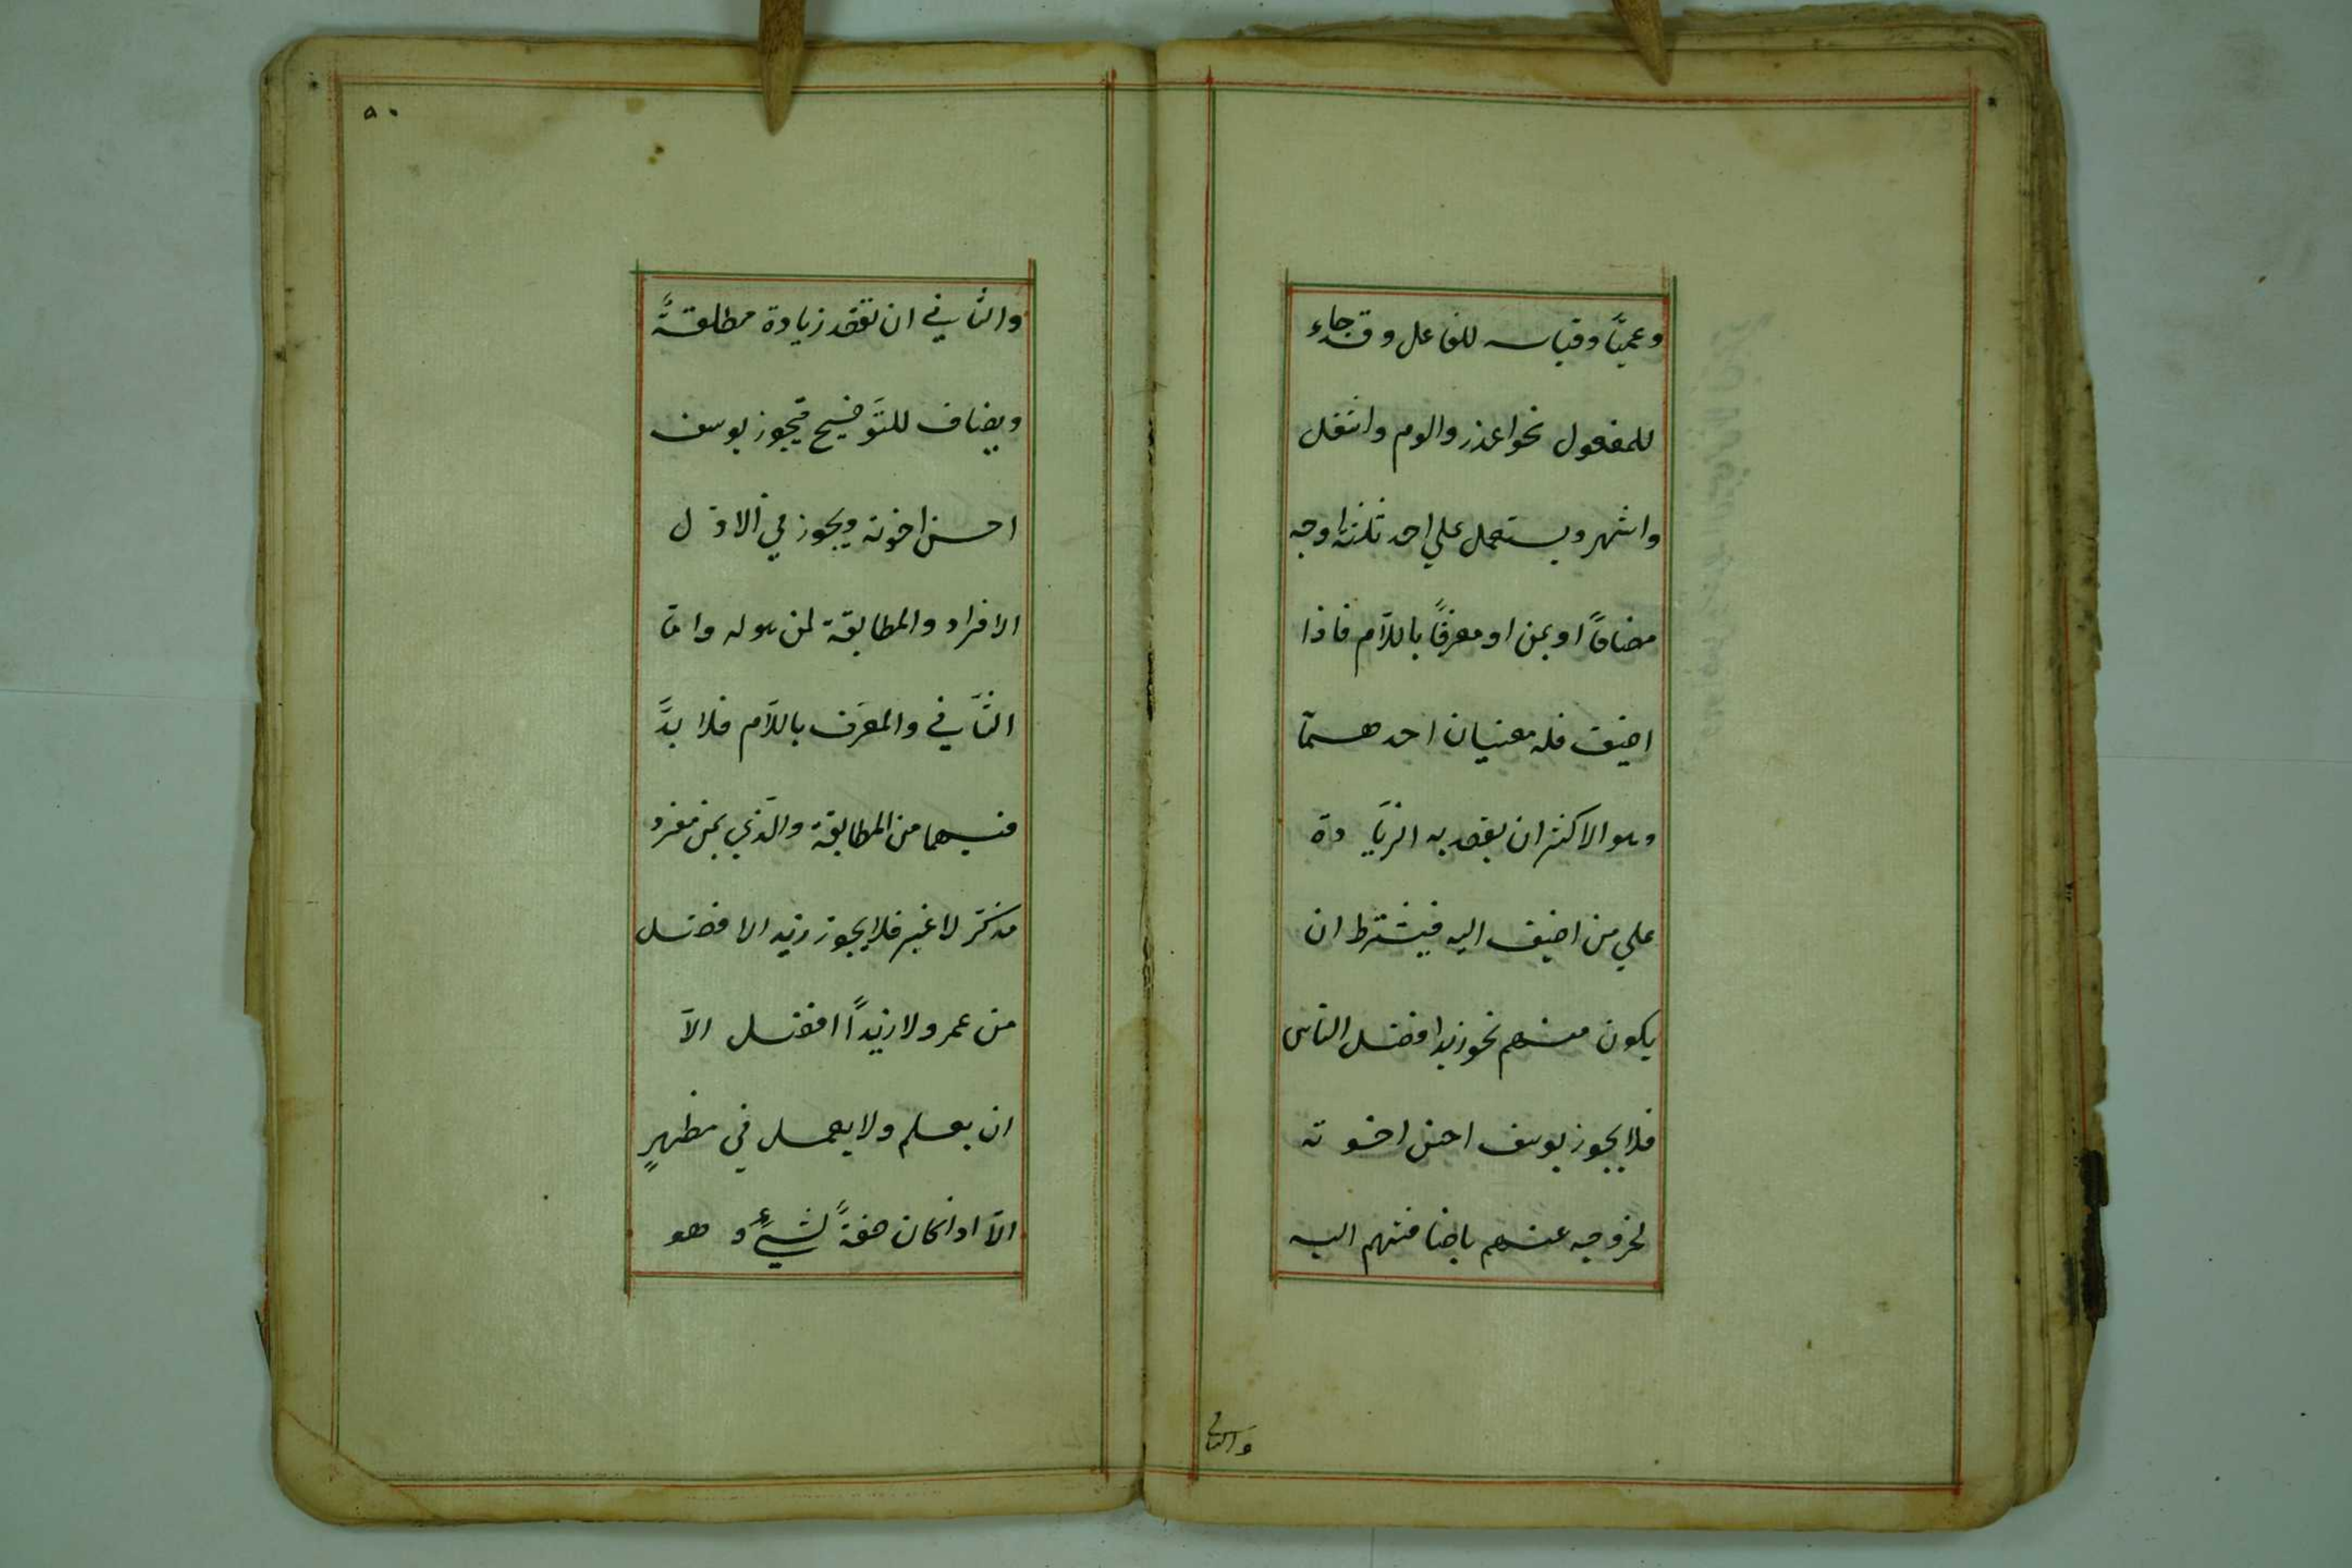 وعميًا وقياسه للفاعل وقد جاء
للمفعول نحو اعذر والوم واشغل
واشهر ويستعمل علي احد ثلثة اوجه
مضافًا او بمن او معرفًا باللّام فاذا
اضيف فله معنيان احدهمآ
وهو الاكثر ان يقصد به الزيَادة
علي من اضيف اليه فيشترط ان
يكون منهم نحو زيد افضل الناس
فلا يجوز يوسف احسن اخوته
لخروجه عنهم باضافتهم اليه
والثاني
٥٠
والثاني ان تقصد زيادة مطلقةً
ويضاف للتَوضيح فيجوز يوسف
احسن اخوته ويجوز في الاوّل
الافراد والمطابقة لمن هو له وامّا
الثَّاني والمعرَف باللَام فلا بدَّ
فيهما من المطابقة والَذي بمن مفرد
مذكّر لا غير فلا يجوز زيد الافضل
من عمرو لا زيدًا افضل الاّ
ان يعلم ولا يعمل في مظهرٍ
الاّ اذا كان صفةً لشيءٍ و هو